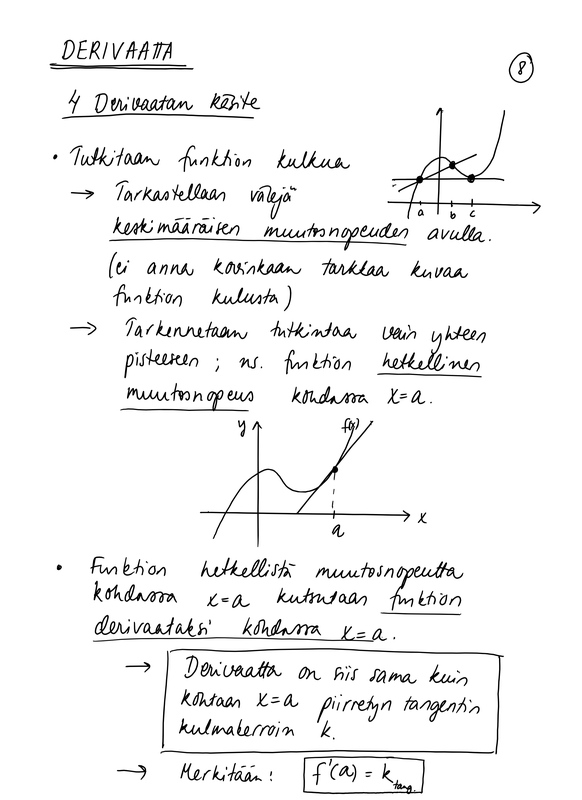 DERIVAATTA
8
4 Derivaatan käsite
• Tutkitaan funktion kulkua
→ Tarkastellaan välejä
keskimääräisen muutosnopeuden avulla.
(ei anna kovinkaan tarkkaa kuvaa
funktion kulusta)
a b c
→ Tarkennetaan tutkintaa vain yhteen
pisteeseen ; ns. funktion hetkellinen
muutosnopeus kohdassa x=a.
y f(x)
x
a
• Funktion hetkellistä muutosnopeutta
kohdassa x=a kutsutaan funktion
derivaataksi kohdassa x=a.
→ Derivaatta on siis sama kuin
kohtaan x=a piirretyn tangentin
kulmakerroin k.
→ Merkitään: f'(a) = k tang.